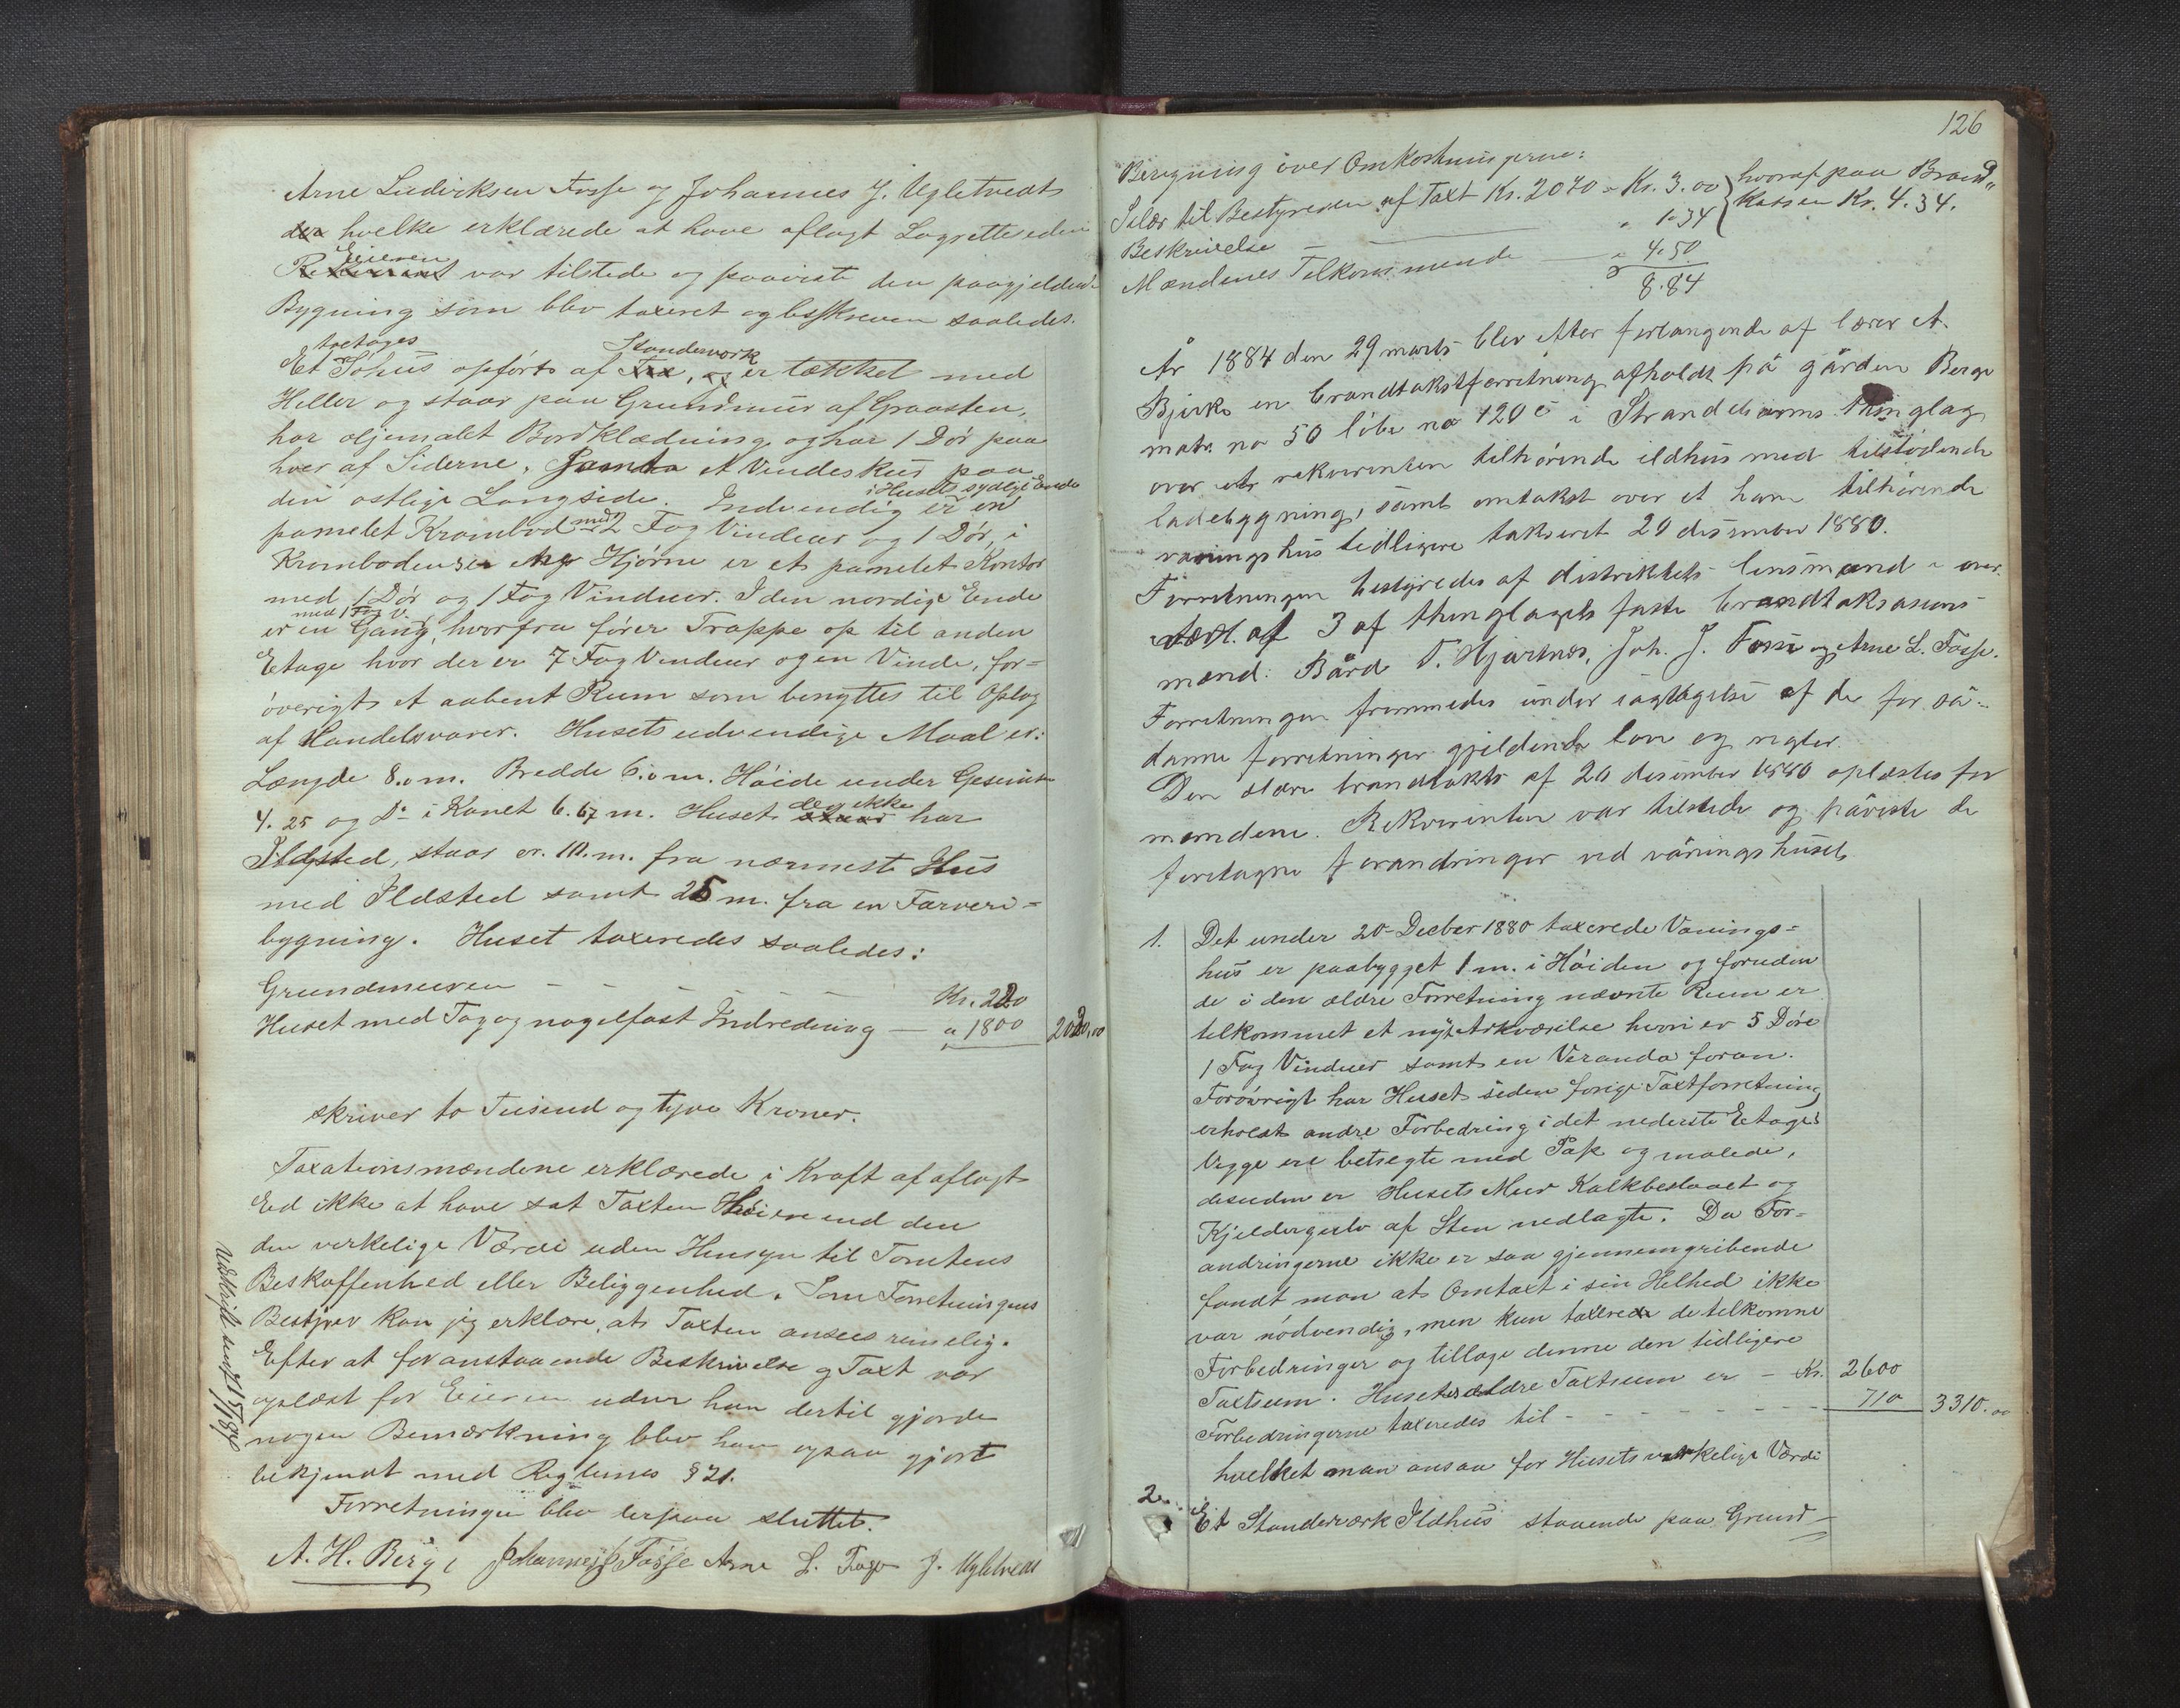 Arne Ludviksen Fosse og Johannes J. Ugletvedt
der hvilke erklærede at have aflagt Lagretteseden
Eieren
Rekvirent var tilstede og paaviste den paagjeldende
Bygning som blev taxeret og beskreven saaledes.
toetages Standerverk
Et Søhus opført af Træ, og er tækket med
Heller og staar paa Grundmur af Graasten,
har oljemalet Bordklædning og har 1 Dør paa
hver af Siderne, samt et Vindeskur paa
i Husets sydlige Ende
den østlige Langside. Indvendig er en
panelet Krambod med 2 Fag Vinduer og 1 Dør, i
Krambodens Hjørne er et panelet Kontor
med 1 Dør og 1 Fag Vinduer. I den nordlige Ende
med 1 Fag V.
er en Gang, hvorfra fører Trappe op til anden
Etage hvor der er 7 Fag Vinduer og en Vinde, for=
øvrigt et aabent Rum som benyttes til Oplag
af Handelsvarer. Husets udvendige Maal er:
Længde 8.0 m. Bredde 6.0 m. Høide under Gesimts
4.25 og Do i Rønet 6.67 m. Huset har
der ikke
Ildsted, staar cr. 10. m. fra nærmeste Hus
med Ildsted samt 25 m. fra en Farveri=
bygning. Huset taxeredes saaledes:
Grundmuren - - - - - Kr. 220
Huset med Tag og nagelfast Indredning — " 1800 2020,00
skriver to Tusend og tyve Kroner.
Taxationsmændene erklærede i Kraft af aflagt
Ed ikke at have sat Taxten Høiere end den
den verkelige Værdi uden Hensyn til Tomtens
Beskaffenhed eller Beliggenhed. Som Forretningens
Bestyrer kan jeg erklære, at Taxten ansees rimelig.
Efter at foranstaaende Beskrivelse og Taxt var
oplæst for Eieren uden han dertil gjorde
nogen Bemærkning blev han ogsaa gjort
bekjendt med Reglernes § 21.
Forretningen blev derpaa sluttet.
A. H. Berge Johannes J Fosse Arne L. Fosse J. Ugletvedt
126
Beregning over Omkostningerne:
Salær til Bestyreren af Taxt Kr. 2020 = Kr. 3.00 } hvoraf paa Brand"
Beskrivelse — — " 1.34 } kassen Kr. 4.34.
Mændenes Tilkommende — " 4.50
8.84
År 1884 den 29 marts blev efter forlangende af lærer A.
Bjørke en brandtakstforretning afholdt på gården Berge
matr. no 50 løbe no 120 c i Strandebarms thinglag
over et rekvirenten tilhørende ildhus med tilstødende
ladebygning, samt omtakst over et ham tilhørende
vaaningshus tidligere takseret 20 desember 1880.
Forretningen bestyredes af distriktets lensmand i over-
værl. af 3 af thinglagets faste brandtaksasions
mænd: Bård T. Hjartnes, Joh. J. Fosse og Arne L. Fosse.
Forretningen fremmedes under iagtagelse af de for så-
danne forretninger gjeldende love og regler.
Den ældre brandtakst af 20 desember 1880 oplæstes for
mændene. Rekvirenten var tilstede og påviste de
foretagne forandringer ved våningshuset.
1. Det under 20 Decber 1880 taxerede Vanings=
hus er paabygget 1 m. i Høiden og foruden
de i den ældre Forretning nævnte Rum er
tilkommet et nyt Arkværelse hvori er 5 Døre
1 Fag Vinduer samt en Veranda foran.
Forøvrigt har Huset siden forige Taxtforretning
erholdt andre Forbedring i det nederste Etages
Vegge ere betrægte med Pap og malede,
desuden er Husets Mur Kalkbeslaaet og
Kjeldergulv af Sten nedlagte. Da For=
andringerne ikke er saa gjennemgribende
fandt man at Omtaxt i sin Helhed ikke
var nødvendig, men kun taxere de tilkomne
Forbedringer og tillage denne den tidligere
Taxtsum. Husets ældre Taxtsum er — Kr. 2600
Forbedringerne taxeredes til - - - - - 710 3310.00
hvelket man ansaa for Husets verkelige Værdi
2. Et Standerværk Ildhus staaende paa Grund-